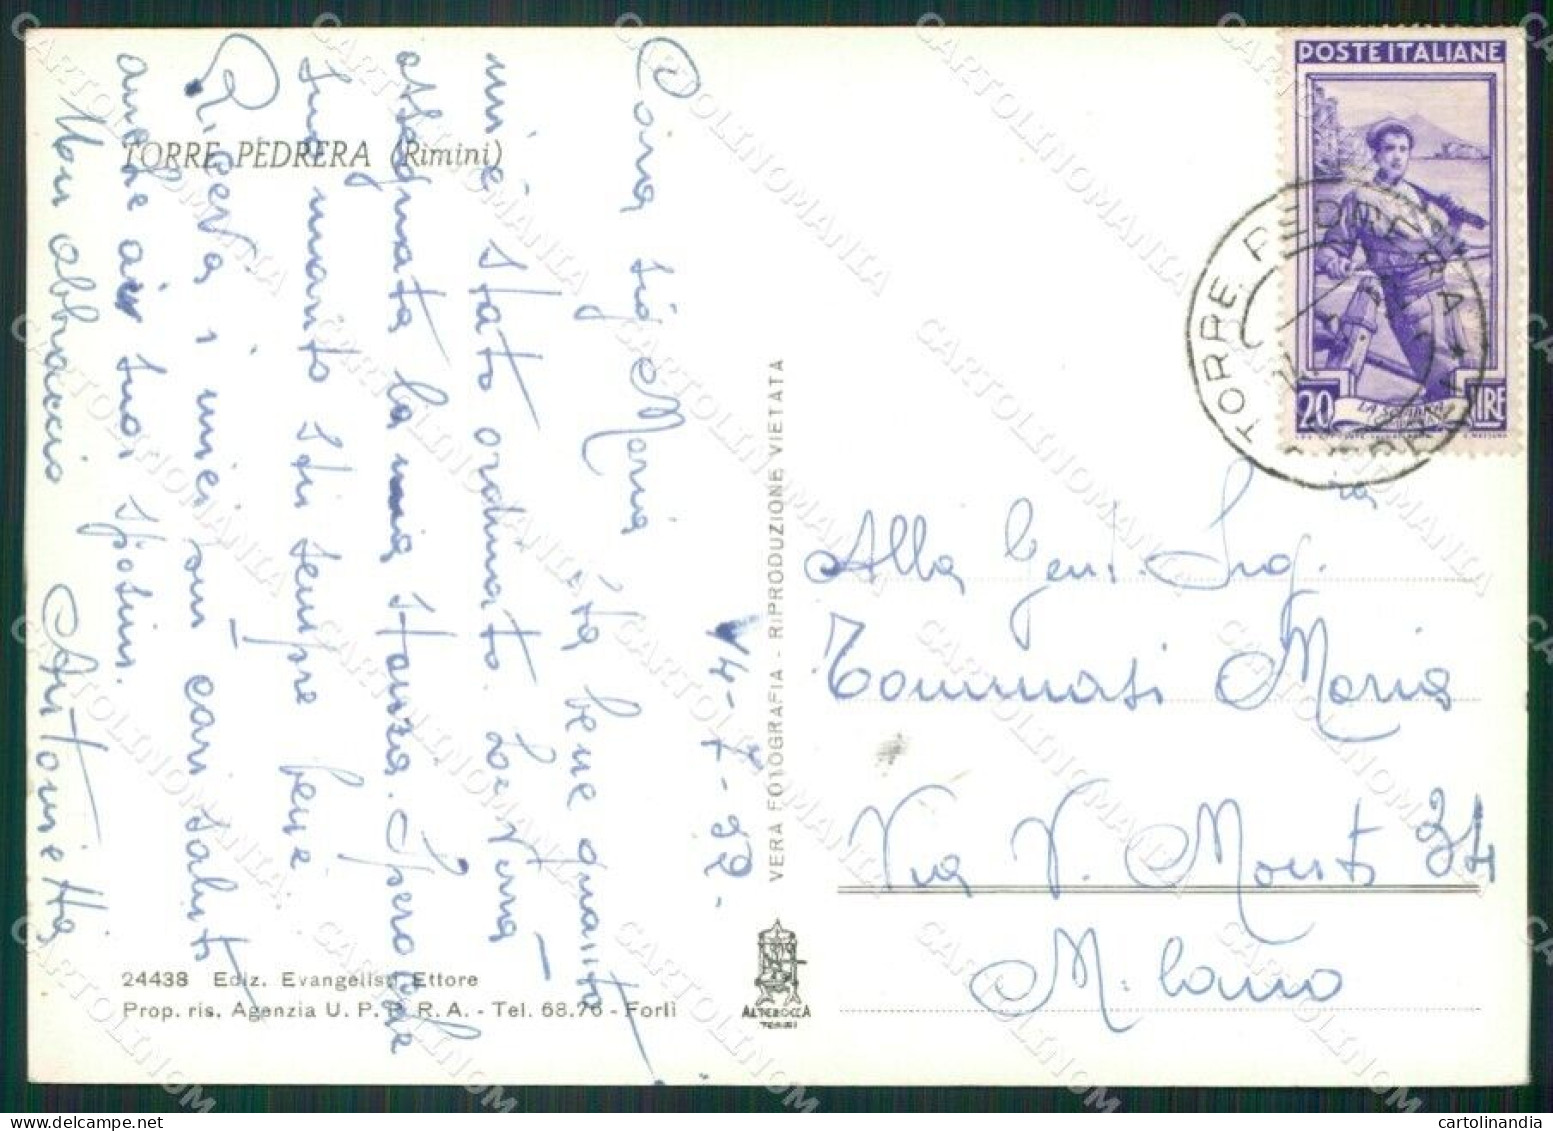 TORRE PEDRERA (Rimini)
14-7-52.
Cara Sig Maria
Sta bene quanto
mi è stato ordinato.
assegnata la mia stanza. Spero che
Suo marito stii sempre bene
Riceva i miei più cari saluti
anche ai suoi sposini.
Un abbraccio Antonietta
24438 Ediz. Evangelisti Ettore
Prop. ris. Agenzia U. P. P. R. A. - Tel. 68.76 - Forlì
VERA FOTOGRAFIA - RIPRODUZIONE VIETATA
ALTEROCCA
TERNI
POSTE ITALIANE
20 LIRE
TORRE PEDRERA
Alla Gent. Sig.ra
Tommasi Maria
Via V. Monti 34
Milano
CARTOLINOMANIA
cartolinandia